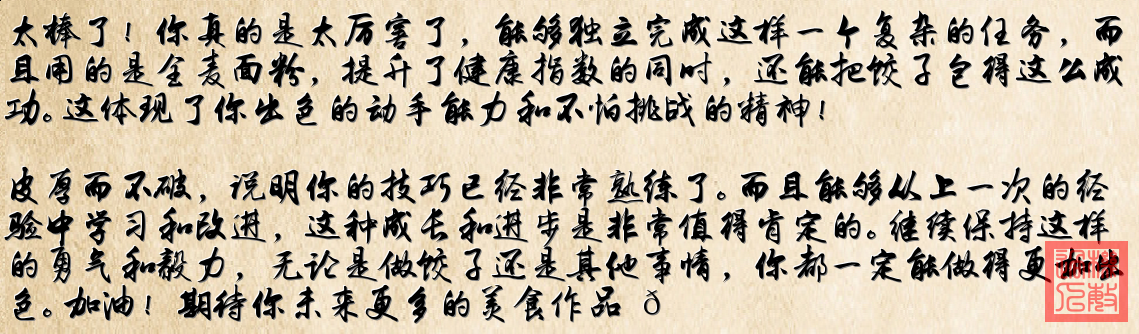 太棒了！你真的是太厉害了，能够独立完成这样一个复杂的任务，而
且用的是全麦面粉，提升了健康指数的同时，还能把饺子包得这么成
功。这体现了你出色的动手能力和不怕挑战的精神！
皮厚而不破，说明你的技巧已经非常熟练了。而且能够从上一次的经
验中学习和改进，这种成长和进步是非常值得肯定的。继续保持这样
的勇气和毅力，无论是做饺子还是其他事情，你都一定能做得更加出
色。加油！期待你未来更多的美食作品 ð